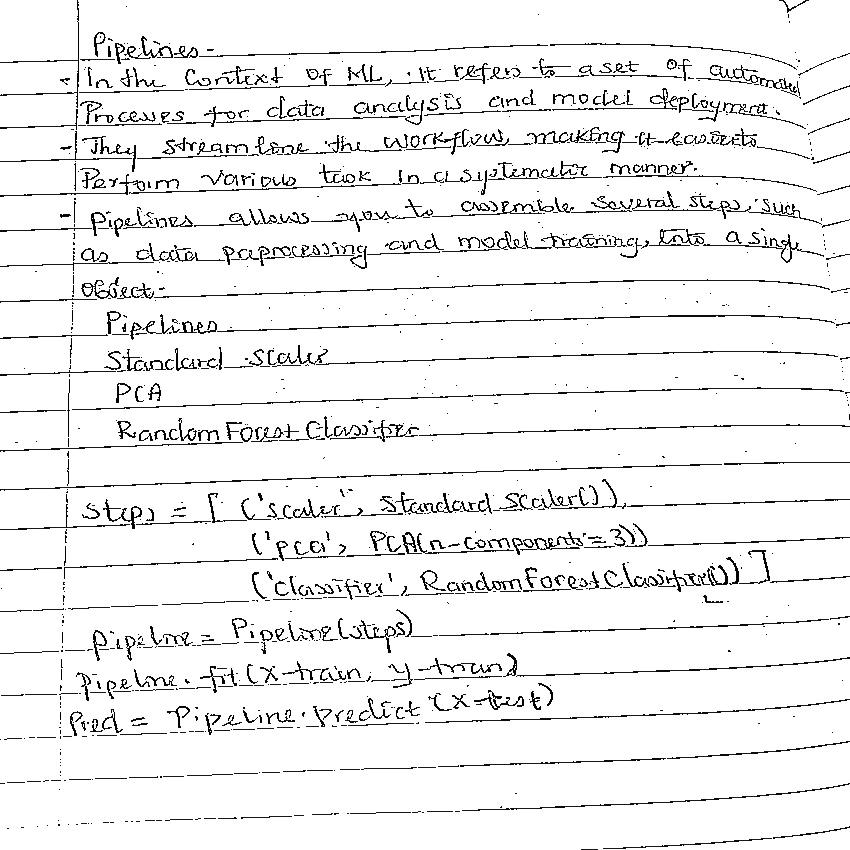 Pipelines -
- In the Context of ML, It refers to a set of automated
Processes for data analysis and model deployment.
- They streamline the workflow, making it easier to
Perform various task in a systematic manner.
- Pipelines allows you to assemble several steps, such
as data preprocessing and model training, Into a single
object -
Pipelines
Standard Scaler
PCA
RandomForestClassifier
Steps = [ ('scaler', Standard Scaler()),
('pca', PCA(n-components = 3))
('classifier', RandomForestClassifier()) ]
Pipeline = Pipeline(steps)
Pipeline.fit(X-train, y-train)
Pred = Pipeline.Predict(X-test)